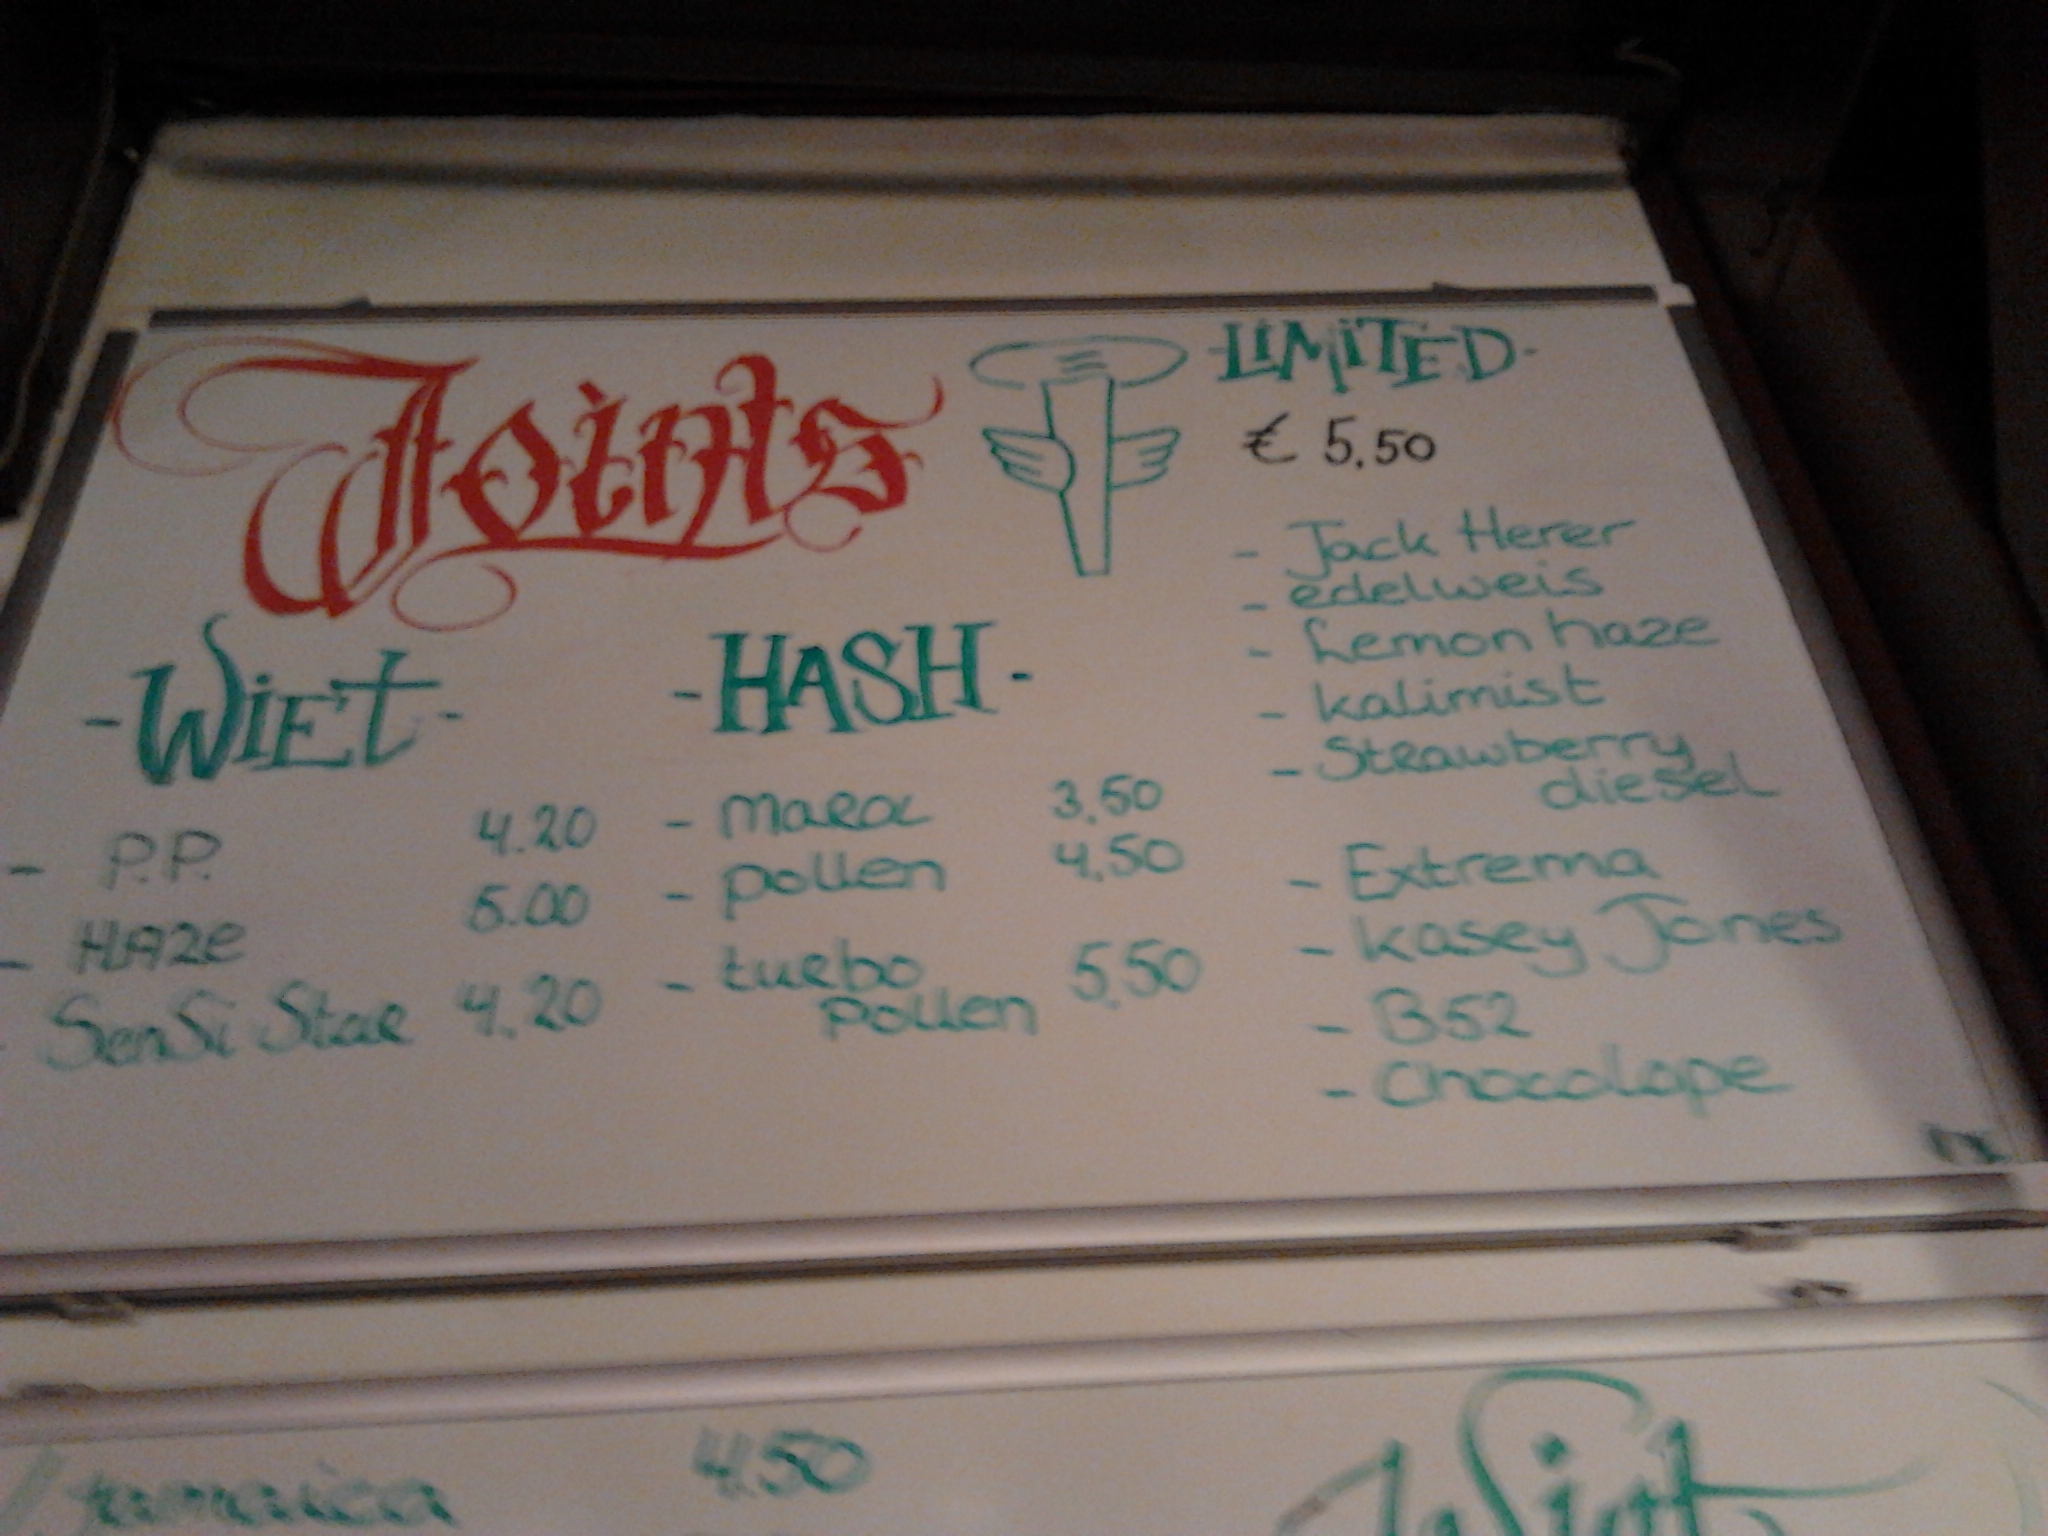 Joints
- LIMITED -
€ 5,50
- Jack Herer
- edelweis
- Lemon haze
- kalimist
- Strawberry
diesel
- Extrema
- kasey Jones
- B52
- Chocolope
- Wiet -
- P.P. 4.20
- HAZe 5.00
- SenSi Star 4.20
- HASH -
- maroc 3,50
- pollen 4,50
- turbo 5,50
pollen
jamaica 4,50
Wiet